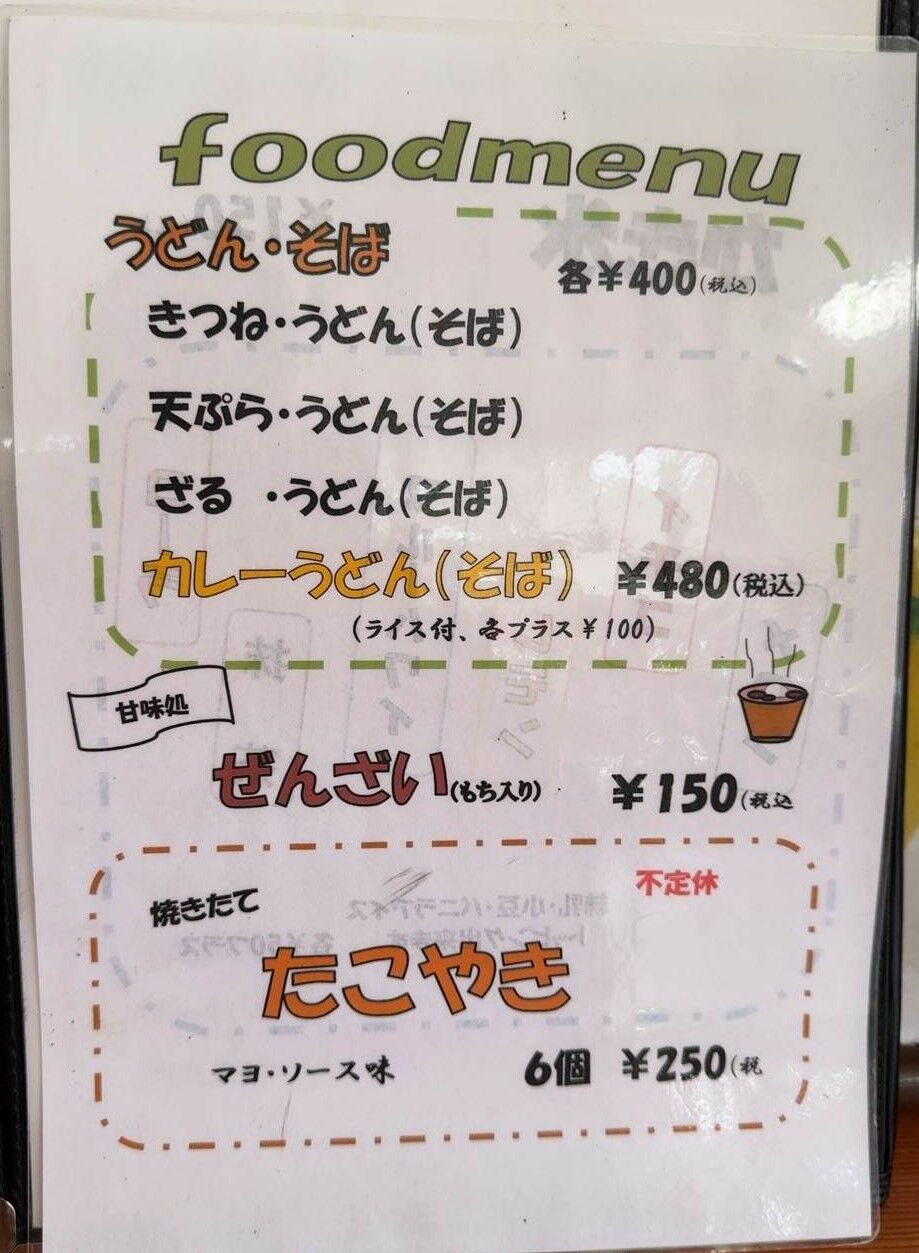 foodmenu
うどん・そば
各￥400(税込)
きつね・うどん(そば)
天ぷら・うどん(そば)
ざる ・うどん(そば)
カレーうどん(そば) ￥480(税込)
(ライス付、各プラス￥100)
甘味処
ぜんざい(もち入り) ￥150(税込
不定休
焼きたて
たこやき
マヨ・ソース味 6個 ￥250(税